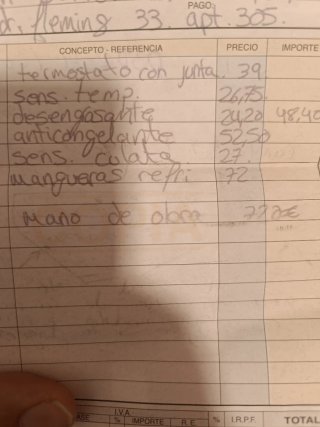 PAGO:
dr. fleming 33. apt. 305.
CONCEPTO - REFERENCIA PRECIO IMPORTE
termostato con junta. 39
sens. temp. 26,75
desengasante 24,20 48,40
anticongelante 52,50
sens. culata 27.
mangueras refri 72
mano de obra
BASE I.V.A. % IMPORTE R.E. % I.R.P.F. TOTAL